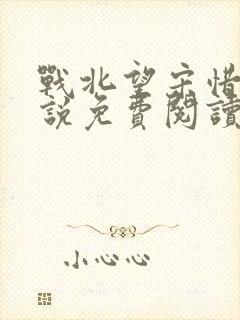 戰北望宋惜
說免費閱讀
小心心